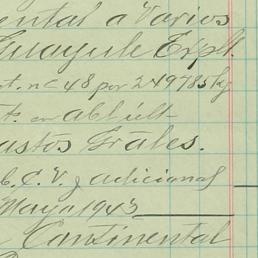 ental a Varios
Guayule Explt.
t. nº 48 por 249785 kg
astos Grales.
C. V. y adicional
Mayo 1943
Continental